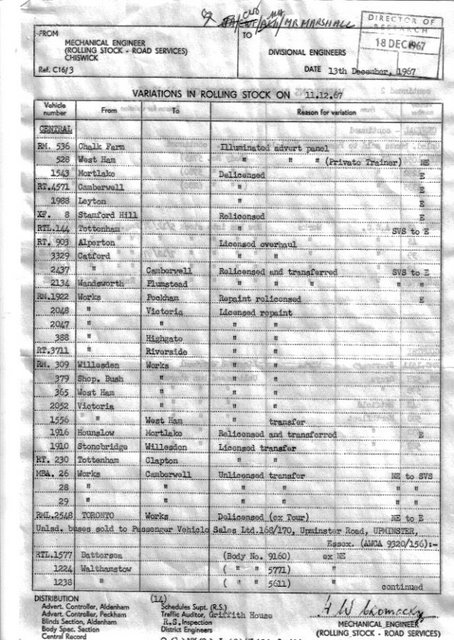 MR MARSHALL
DIRECTOR OF
RESEARCH
18 DEC 1967
FROM
MECHANICAL ENGINEER
(ROLLING STOCK - ROAD SERVICES)
CHISWICK
Ref. C16/3
TO
DIVISIONAL ENGINEERS
DATE 13th December, 1967
VARIATIONS IN ROLLING STOCK ON 11.12.67
Vehicle number From To Reason for variation
CENTRAL
RM. 536 Chalk Farm Illuminated advert panel
528 West Ham " " " (Private Trainer) NE
1543 Mortlake Delicensed E
RT.4571 Camberwell " E
1988 Leyton " E
XF. 8 Stamford Hill Relicensed E
RTL.144 Tottenham " SVS to E
RT. 903 Alperton Licensed overhaul
3329 Catford " "
2437 " Camberwell Relicensed and transferred SVS to E
2134 Wandsworth Plumstead " " " "
RM.1922 Works Peckham Repaint relicensed E
2048 " Victoria Licensed repaint
2047 " " " "
388 " Highgate " "
RT.3711 " Riverside " "
RM. 309 Willesden Works " "
379 Shep. Bush " " "
365 West Ham " " "
2052 Victoria " " "
1556 " West Ham " transfer
1916 Hounslow Mortlake Relicensed and transferred E
1910 Stonebridge Willesden Licensed transfer
RT. 230 Tottenham Clapton " "
MBA. 26 Works Camberwell Unlicensed transfer NE to SVS
28 " " " " "
29 " " " " "
RML.2548 TORONTO Works Delicensed (ex Tour) NE to E
Unlsd. buses sold to Passenger Vehicle Sales Ltd.168/170, Upminster Road, UPMINSTER,
Essex. (AMCA 9320/156):-
RTL.1577 Battersea (Body No. 9160) ex NE
1224 Walthamstow ( " " 5771) "
1238 " ( " " 5611) "
continued
DISTRIBUTION (14)
Advert. Controller, Aldenham Schedules Supt. (R.S.)
Advert. Controller, Peckham Traffic Auditor, Griffith House
Blinds Section, Aldenham R.S. Inspection
Body Spec. Section District Engineers
Central Record
MECHANICAL ENGINEER
(ROLLING STOCK - ROAD SERVICES)